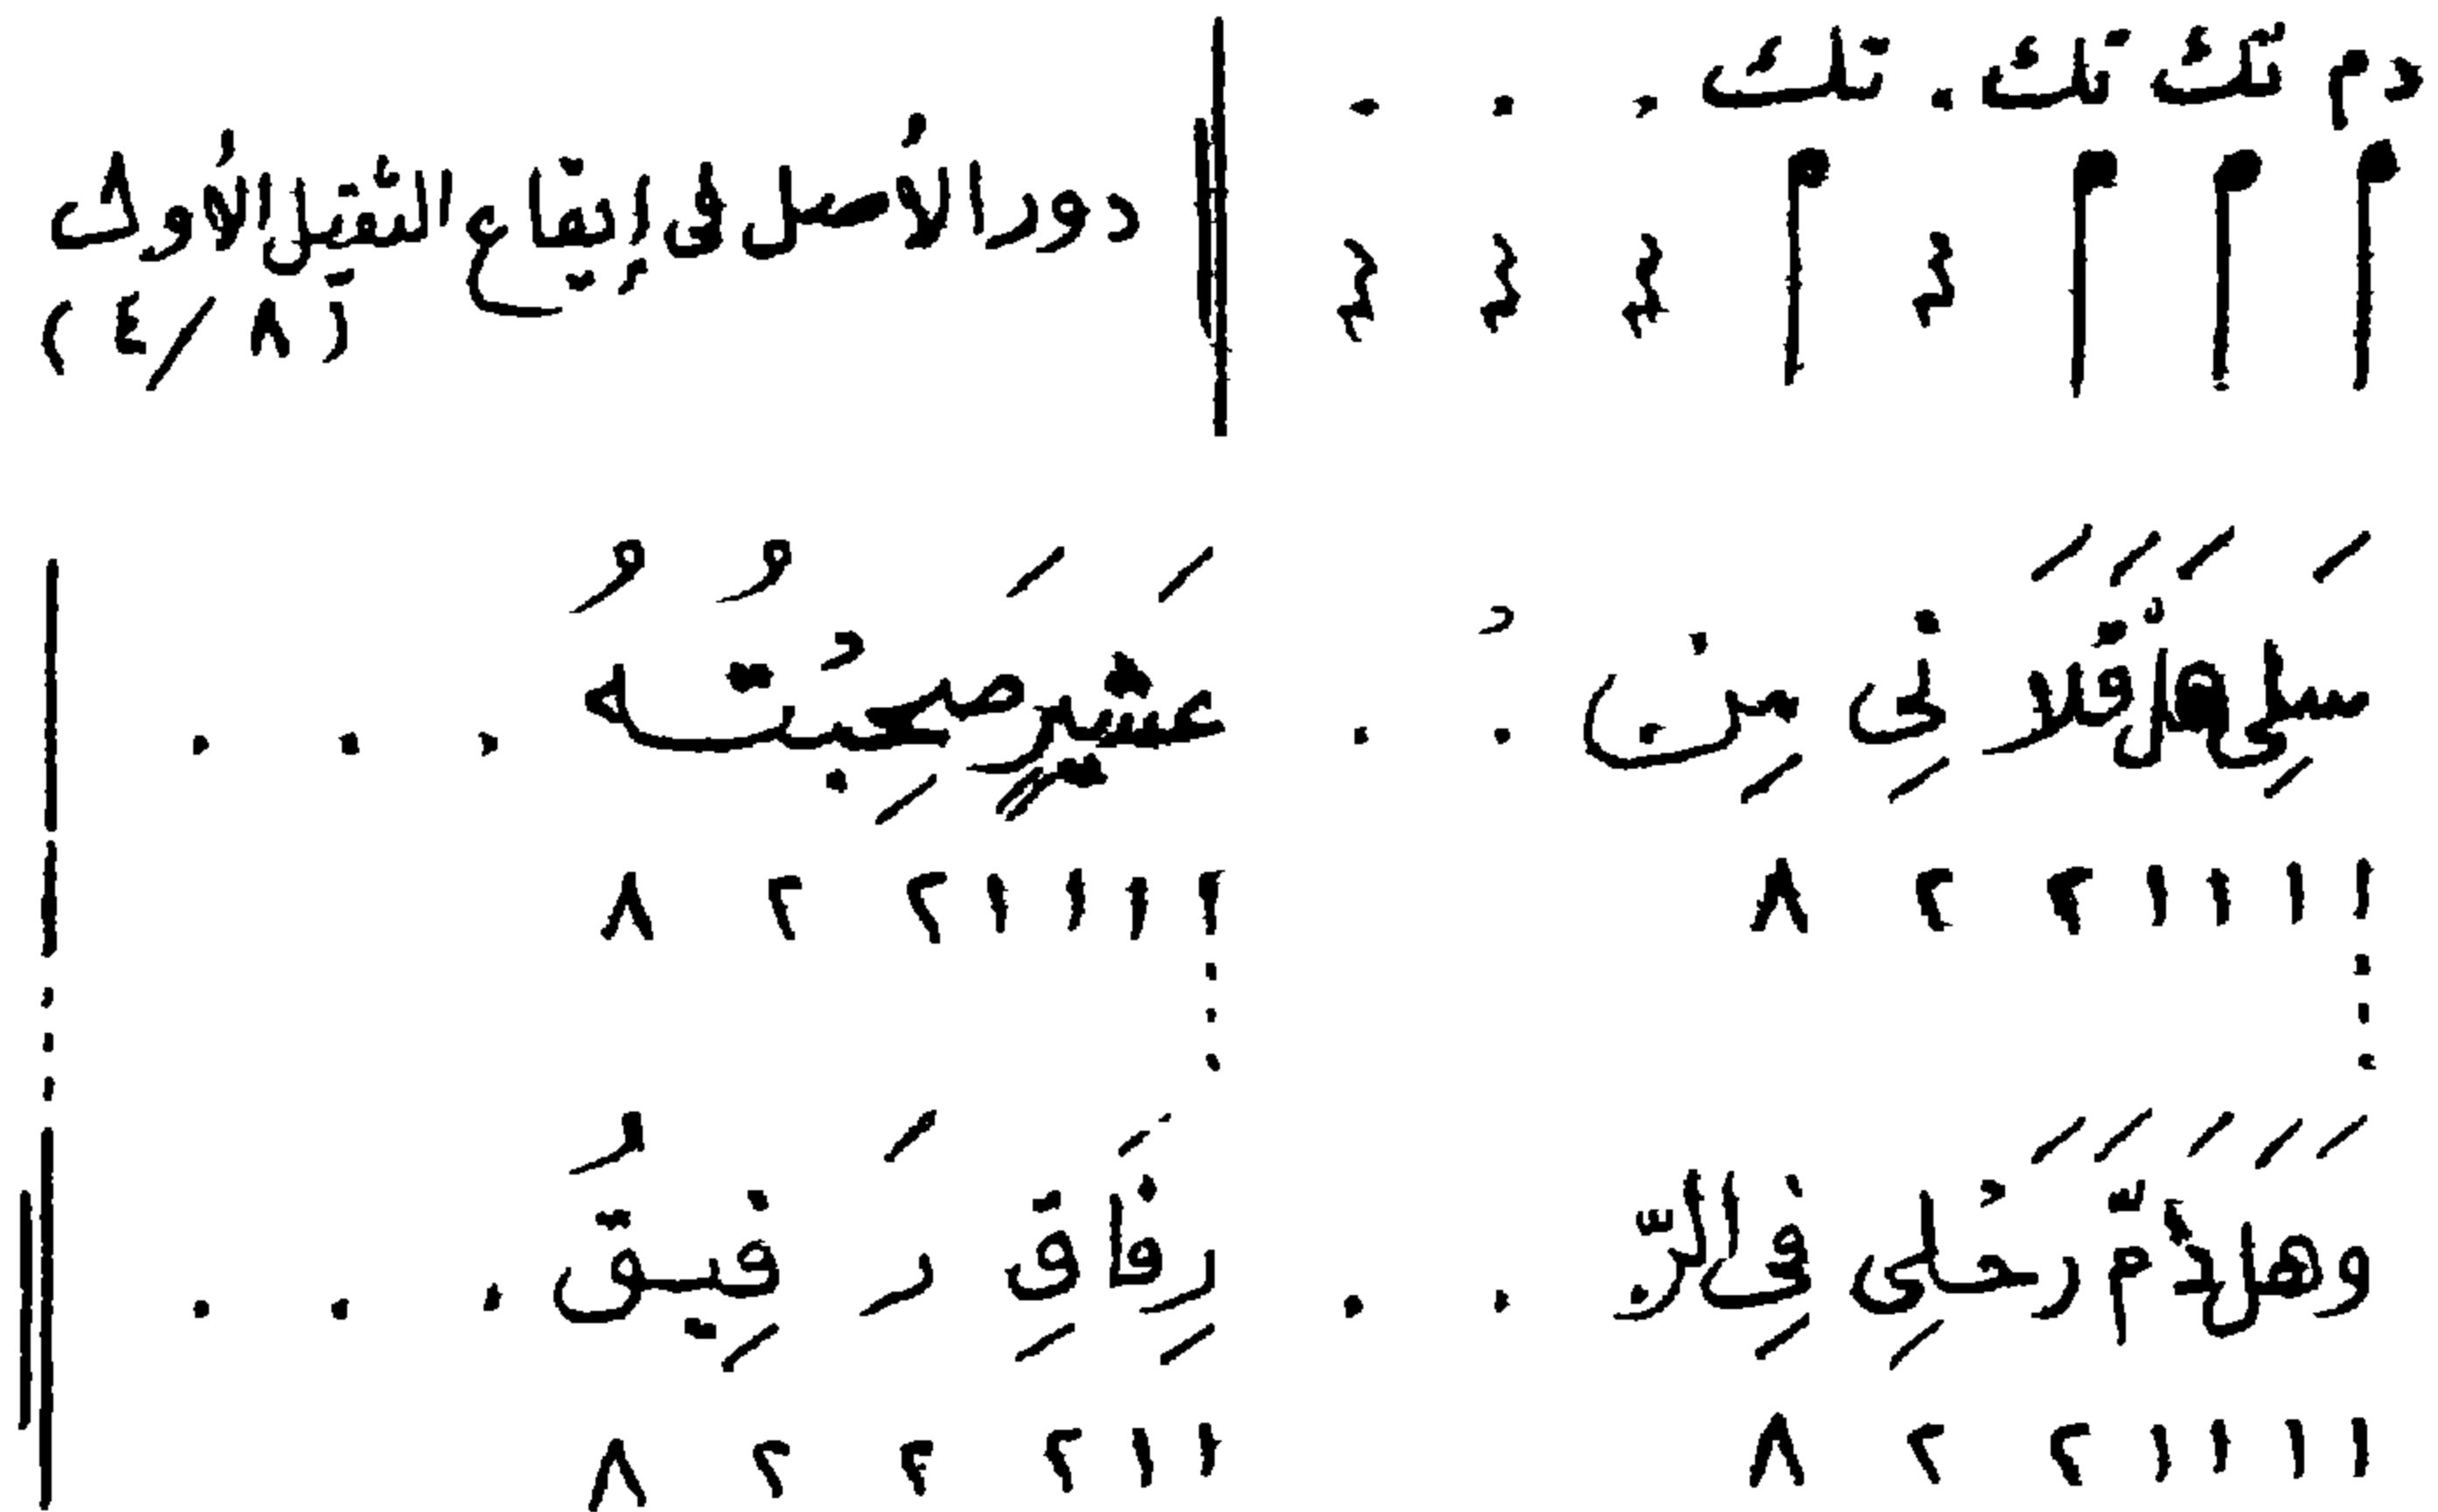 دم تَك تَك . تك . . .
دور الأصل فى إيقاع الثقيل الأول
( ٤/٨ )
سلِى هل قلا نِى مِن . . عشيرٍ صحِبْته . . .
١ ١ ١ ١ ٢ ٢ ٨ ١ ١ ١ ١ ٢ ٢ ٨
وهل ذمّ رحْلِى فِى الرّ . . رِفَاقِ رَفِيقُ . . .
١ ١ ١ ١ ٢ ٢ ٨ ١ ١ ٢ ٢ ٢ ٨